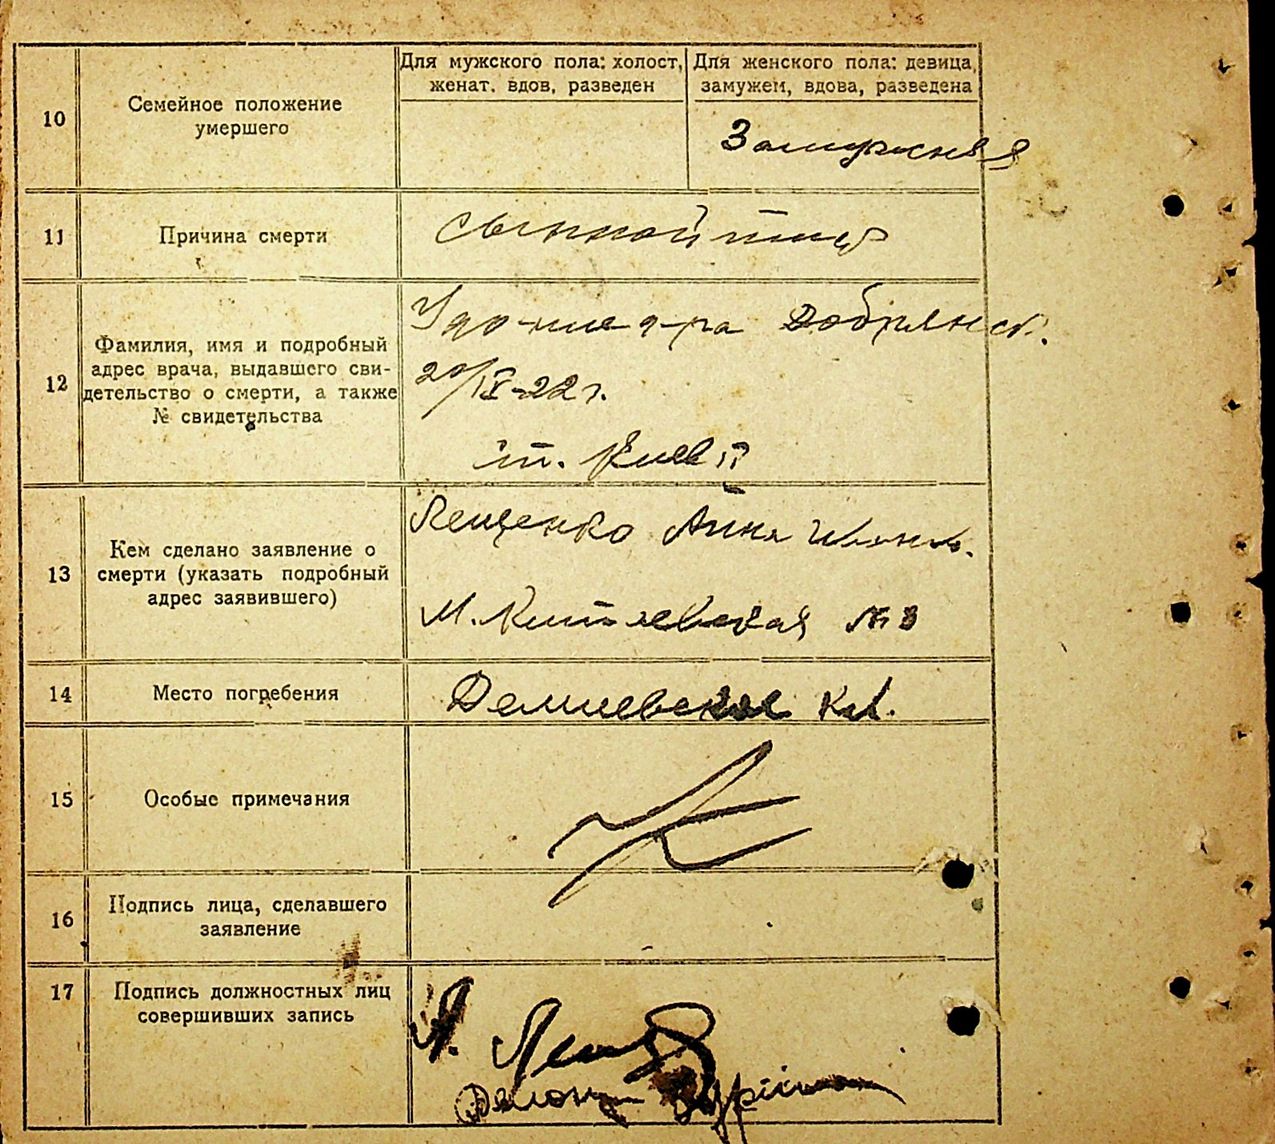 10
Семейное положение
умершего
Для мужского пола: холост,
женат, вдов, разведен
Для женского пола: девица,
замужем, вдова, разведена
Замужняя
11
Причина смерти
сыпной тиф
12
Фамилия, имя и подробный
адрес врача, выдавшего сви-
детельство о смерти, а также
№ свидетельства
Удо-ние д-ра Добрянск.
20/IX-22 г.
13
Кем сделано заявление о
смерти (указать подробный
адрес заявившего)
Лещенко Анна
М. Китаевская № 3
14
Место погребения
Демиевское кл.
15
Особые примечания
16
Подпись лица, сделавшего
заявление
17
Подпись должностных лиц
совершивших запись